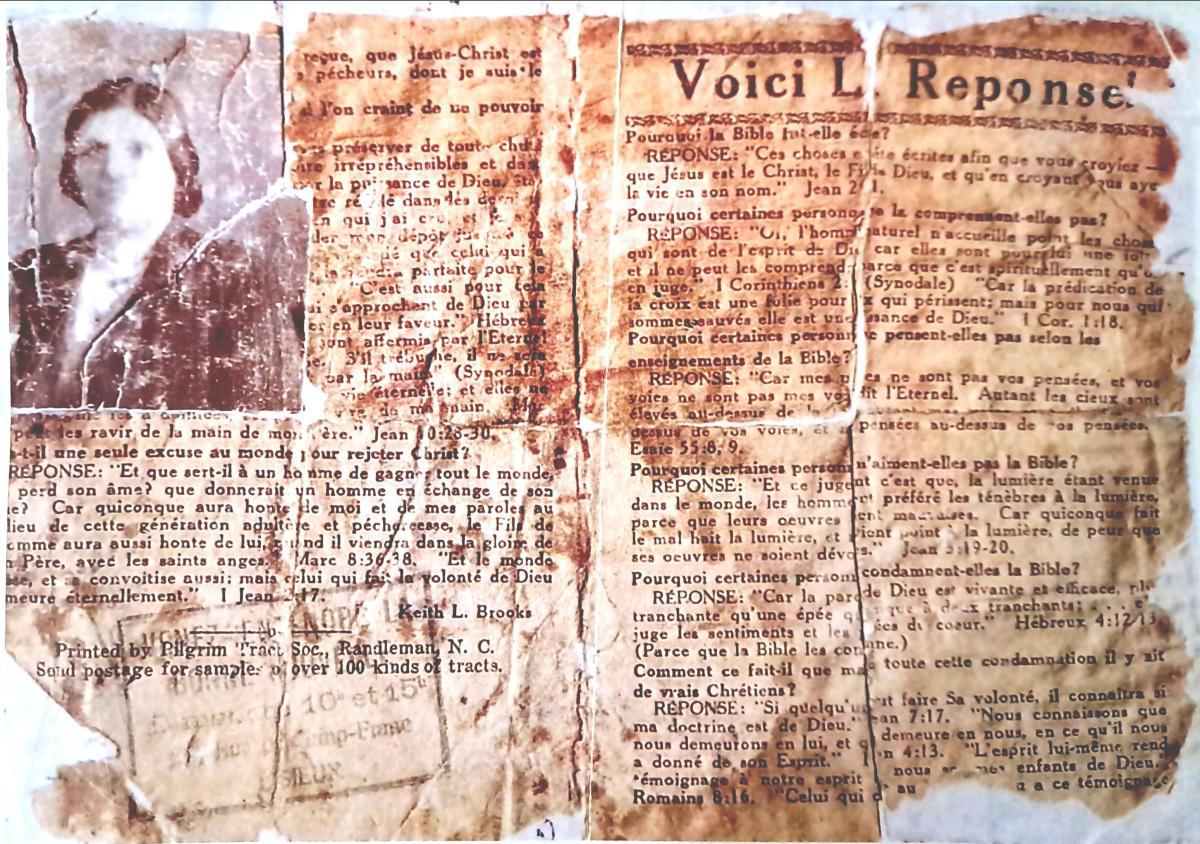 reçue, que Jésus-Christ est
pécheurs, dont je suis le
l'on craint de ne pouvoir
préserver de toute
irrépréhensibles et
la puissance de Dieu,
dans les
n qui j'ai
dépôt
que celui qui a
parfaite pour le
"C'est aussi pour cela
s'approchent de Dieu par
en leur faveur." Hébreux
sont affermis par l'Eternel
S'il trébuche, il ne sera
par la main" (Synodale)
vie éternelle; et elles ne
de ma main.
les ravir de la main de mon Père." Jean 10:28-30.
-t-il une seule excuse au monde pour rejeter Christ?
RÉPONSE: "Et que sert-il à un homme de gagner tout le monde,
perd son âme? que donnerait un homme en échange de son
e? Car quiconque aura honte de moi et de mes paroles au
lieu de cette génération adultère et pécheresse, le Fils de
omme aura aussi honte de lui, quand il viendra dans la gloire de
n Père, avec les saints anges." Marc 8:36-38. "Et le monde
se, et sa convoitise aussi; mais celui qui fait la volonté de Dieu
meure éternellement." I Jean 2:17.
Keith L. Brooks
Printed by Pilgrim Tract Soc., Randleman, N. C.
Send postage for samples of over 100 kinds of tracts.
10h et 15h
Voici L Reponse!
Pourquoi la Bible fut-elle
RÉPONSE: "Ces choses été écrites afin que vous croyiez
que Jésus est le Christ, le Fils Dieu, et qu'en croyant vous aye
la vie en son nom." Jean
Pourquoi certaines personn la comprennent-elles pas?
RÉPONSE: "Or, l'homme naturel n'accueille point les chos
qui sont de l'esprit de Di car elles sont pour lui une
et il ne peut les comprend parce que c'est spirituellement qu'o
en juge." I Corinthiens 2: (Synodale) "Car la prédication de
la croix est une folie pour x qui périssent; mais pour nous qui
sommes sauvés elle est une issance de Dieu." I Cor. 1:18.
Pourquoi certaines personn e pensent-elles pas selon les
enseignements de la Bible?
RÉPONSE: "Car mes p es ne sont pas vos pensées, et vos
voies ne sont pas mes vo dit l'Eternel. Autant les cieux sont
élevés au-dessus de
dessus de vos voies, et pensées au-dessus de vos pensées.
Esaie 55:8, 9.
Pourquoi certaines person n'aiment-elles pas la Bible?
RÉPONSE: "Et ce jugement c'est que, la lumière étant venue
dans le monde, les hommes ont préféré les ténèbres à la lumière,
parce que leurs oeuvres ent mauvaises. Car quiconque fait
le mal hait la lumière, et vient point à la lumière, de peur que
ses oeuvres ne soient dévo s." Jean 3:19-20.
Pourquoi certaines person condamnent-elles la Bible?
RÉPONSE: "Car la parole de Dieu est vivante et efficace,
tranchante qu'une épée à deux tranchants;
juge les sentiments et les du coeur." Hébreux 4:12
(Parce que la Bible les con ne.)
Comment ce fait-il que ma toute cette condamnation il y ait
de vrais Chrétiens?
RÉPONSE: "Si quelqu'u ut faire Sa volonté, il connaîtra si
ma doctrine est de Dieu." ean 7:17. "Nous connaissons que
nous demeurons en lui, et q demeure en nous, en ce qu'il nous
a donné de son Esprit." n 4:13. "L'esprit lui-même rend
témoignage à notre esprit nous enfants de Dieu.
Romains 8:16. "Celui qui au a ce témoignage